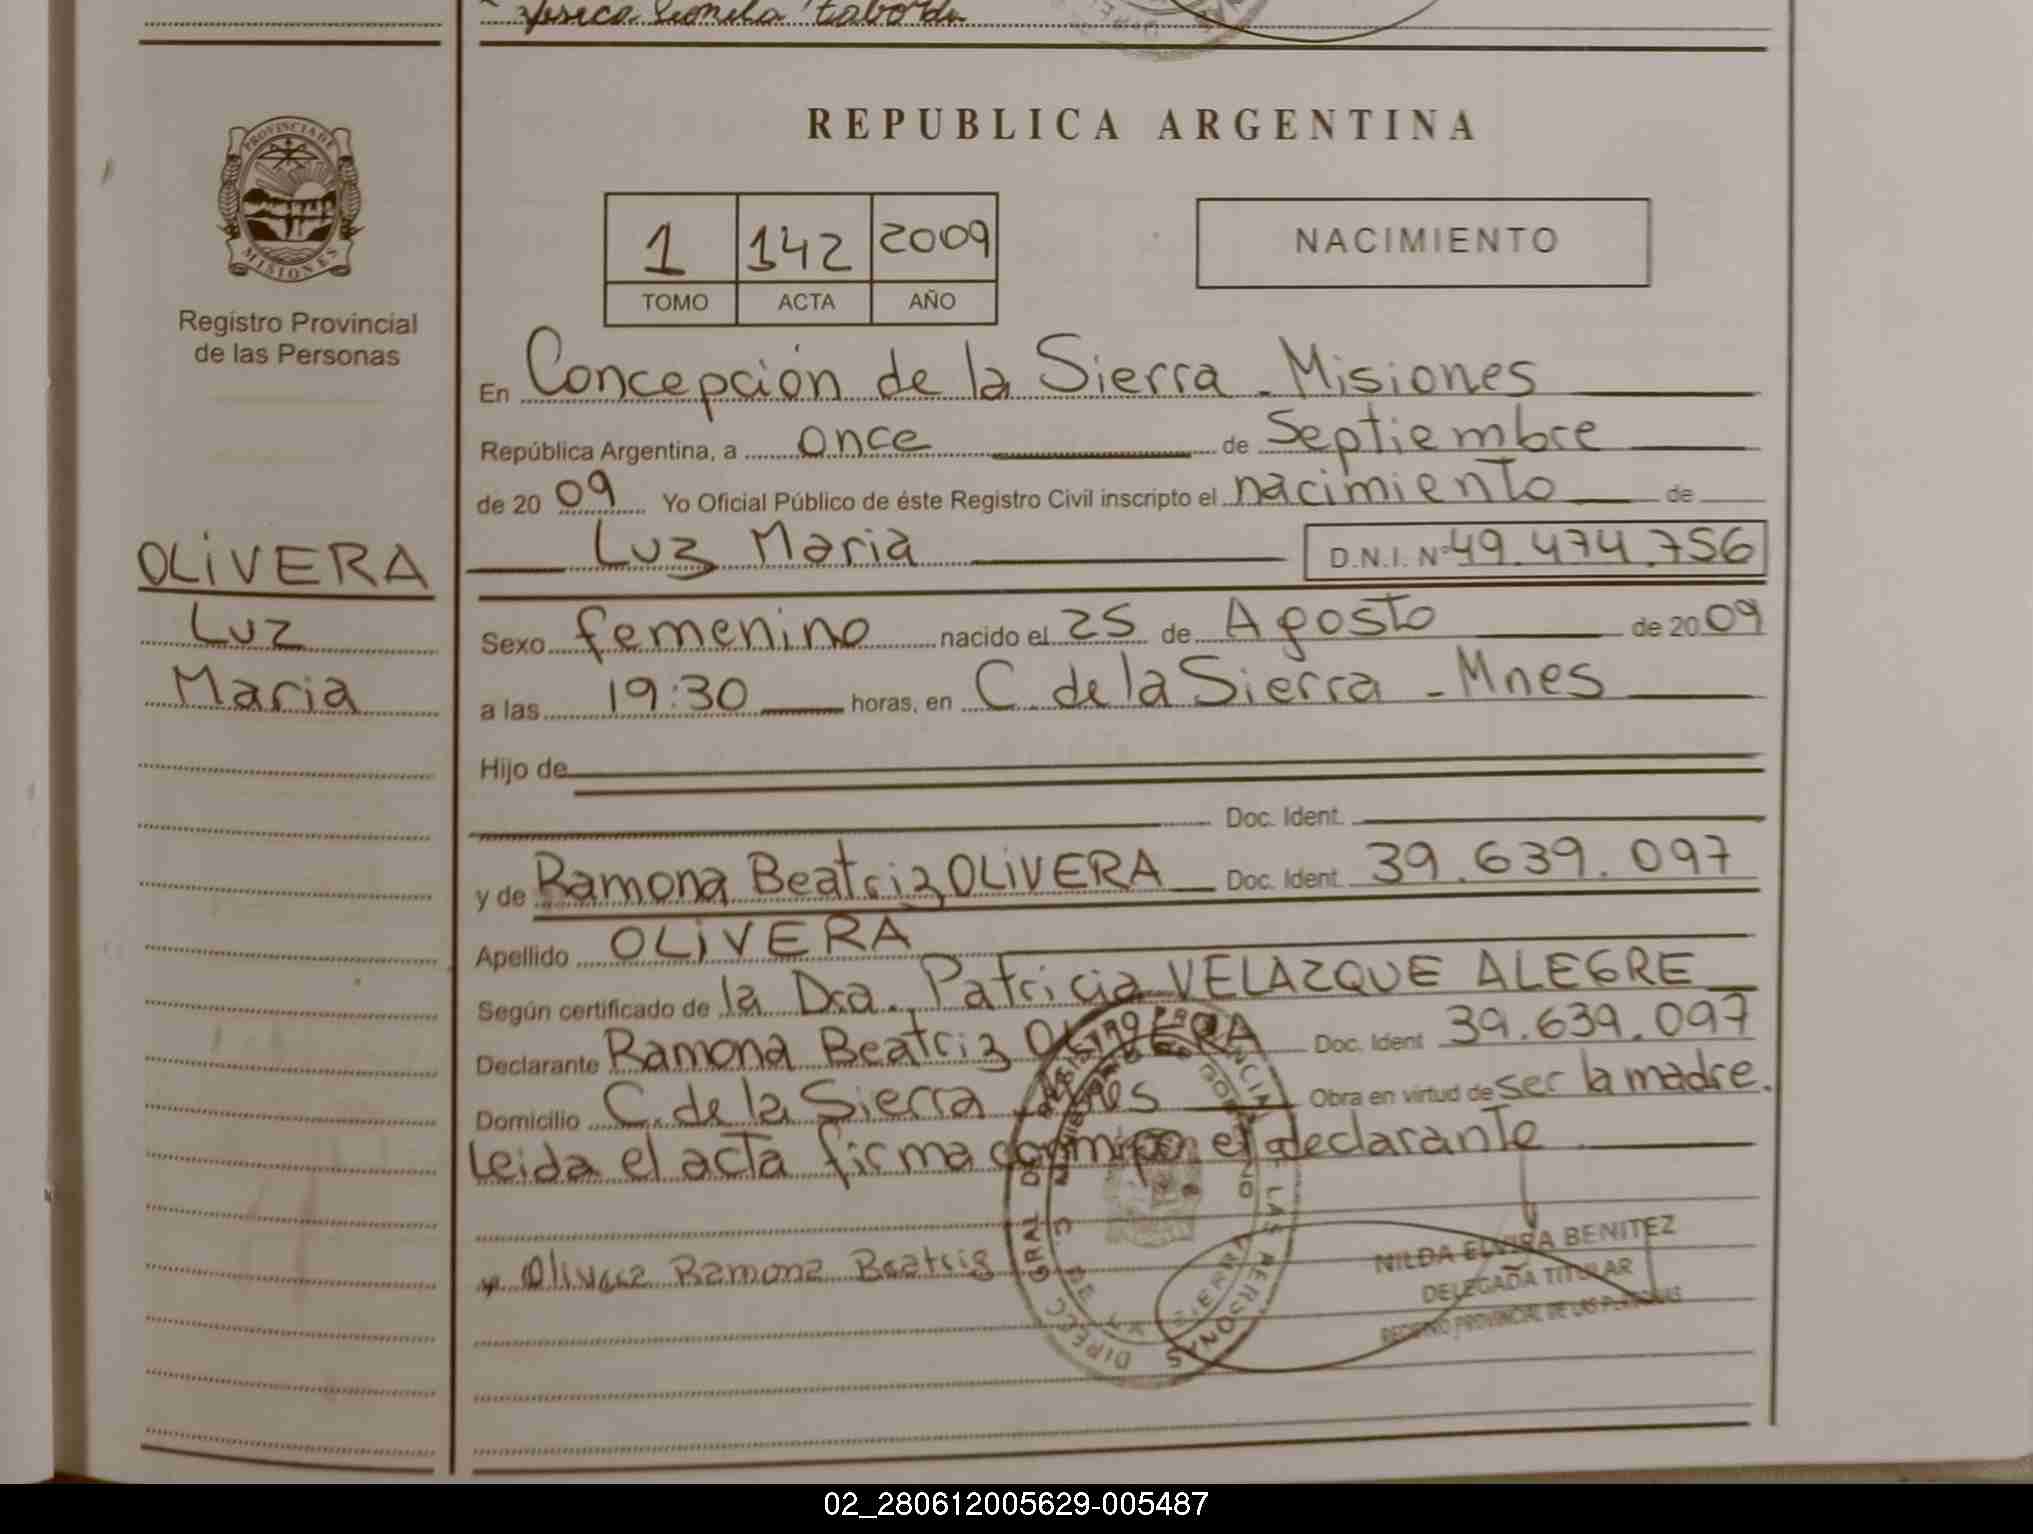 Yesica Lionela Taborda
REPUBLICA ARGENTINA
PROVINCIA DE
MISIONES
Registro Provincial
de las Personas
1 142 2009
TOMO ACTA AÑO
NACIMIENTO
En Concepción de la Sierra - Misiones
República Argentina, a once de Septiembre
de 2009 Yo Oficial Público de éste Registro Civil inscripto el nacimiento de
Luz Maria D.N.I. Nº 49.474.756
OLIVERA
Luz
Maria
Sexo femenino nacido el 25 de Agosto de 2009
a las 19:30 horas, en C. de la Sierra - Mnes
Hijo de
Doc. Ident.
y de Ramona Beatriz OLIVERA Doc. Ident. 39.639.097
Apellido OLIVERA
Según certificado de la Dra. Patricia VELAZQUE ALEGRE
Declarante Ramona Beatriz OLIVERA Doc. Ident 39.639.097
Domicilio C. de la Sierra - Mnes Obra en virtud de ser la madre.
Leida el acta firma conmigo el declarante
Olivera Ramona Beatriz
NILDA ELVIRA BENITEZ
DELEGADA TITULAR
REGISTRO PROVINCIAL DE LAS PERSONAS
02_280612005629-005487